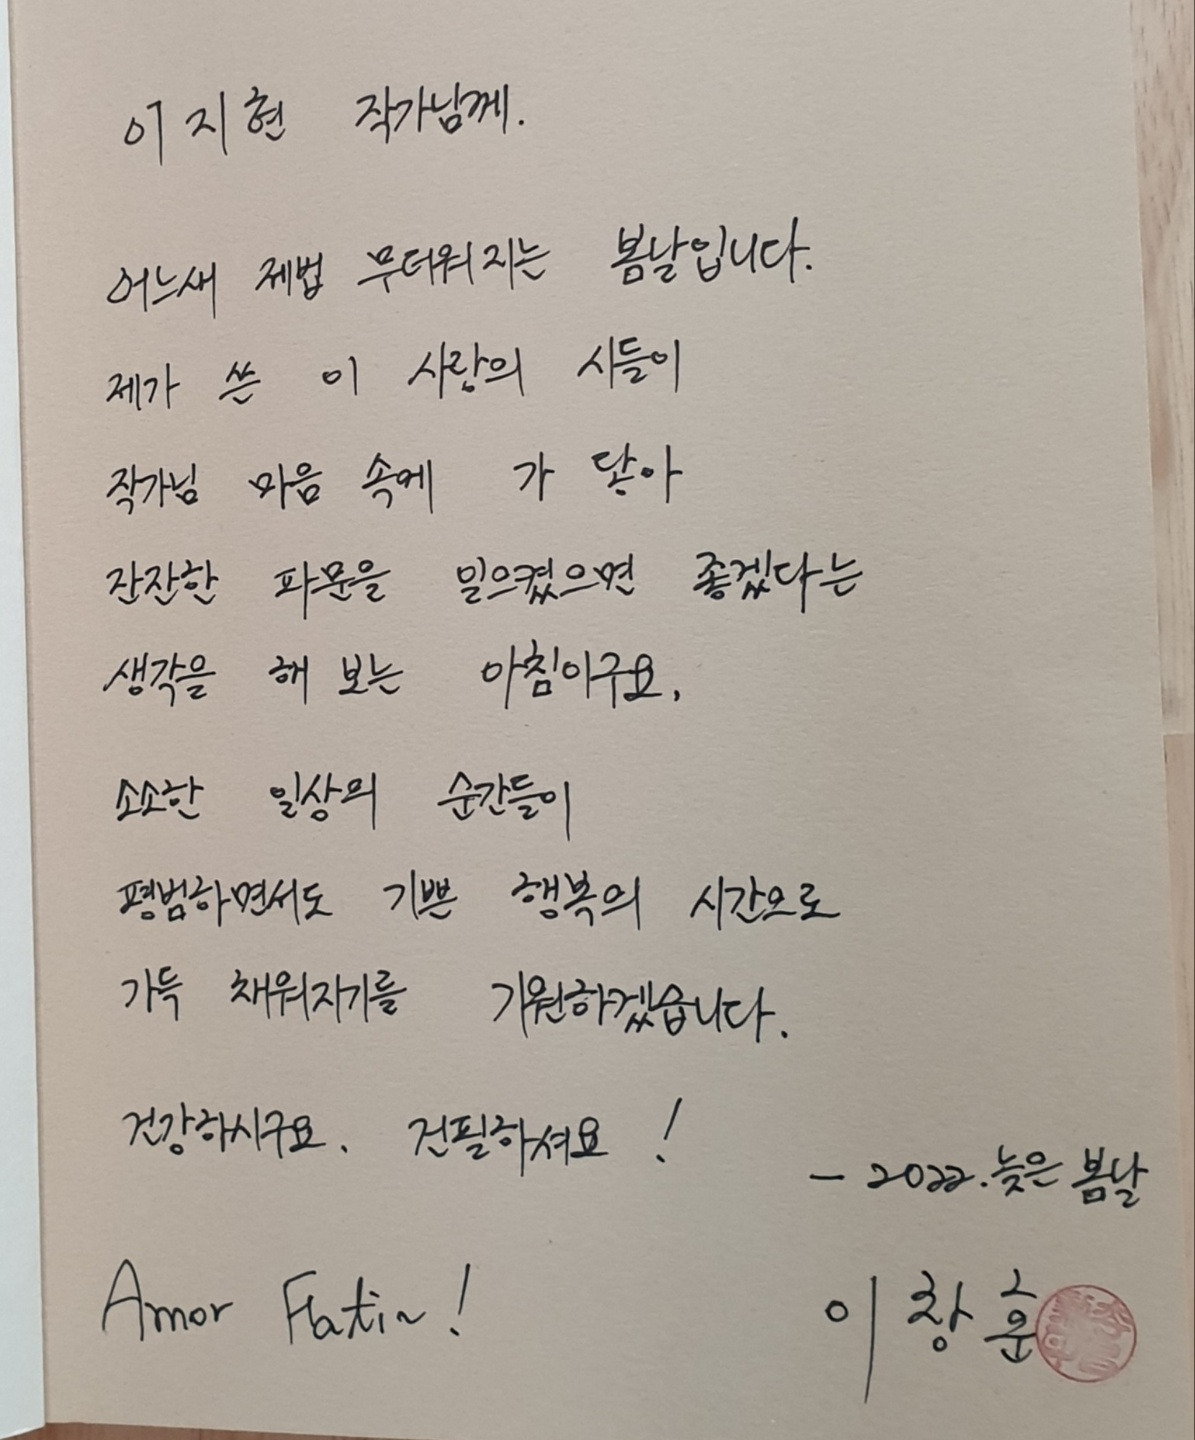 이지현 작가님께.
어느새 제법 무더워지는 봄날입니다.
제가 쓴 이 사랑의 시들이
작가님 마음 속에 가 닿아
잔잔한 파문을 일으켰으면 좋겠다는
생각을 해 보는 아침이구요.
소소한 일상의 순간들이
평범하면서도 기쁜 행복의 시간으로
가득 채워지기를 기원하겠습니다.
건강하시구요. 건필하셔요!
- 2022. 늦은 봄날
Amor
이창훈